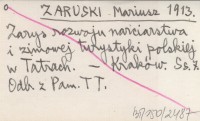 ZARUSKI Mariusz 1913.
Zarys rozwoju narciarstwa
i zimowej turystyki polskiej
w Tatrach. — Kraków. Ss. 7.
Odb. z Pam. TT.